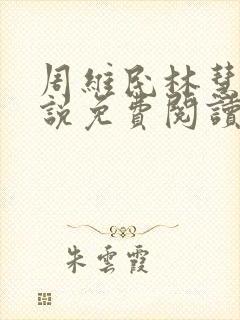 周維民林慧
說免費閱讀
朱雲霞